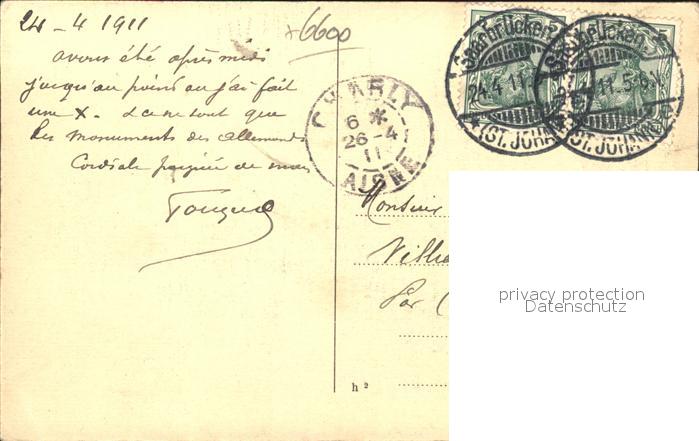 24-4 1911
6600
avons été après midi
jusqu'au point ou j'ai fait
une X. Ce ne sont que
des monuments des allemands
Cordiale poignée de main
CHARLY
6 *
26-4
11
AISNE
Saarbrücken
24.4.11.5-6N
*(ST. JOHANN)
Saarbrücken
11.5-6N
(ST. JOHANN)
5
Monsieur
Par
h 2
privacy protection
Datenschutz